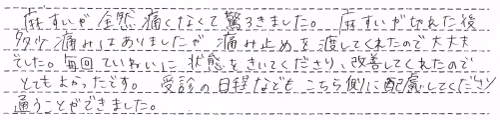 麻すいが全然痛くなくて驚ろきました。麻すいが切れた後
多少痛みはありましたが痛み止めを渡してくれたので大丈夫
でした。毎回ていねいに状態をきいてくださり、改善してくれたので
とてもよかったです。受診の日程なども こちら側に配慮してくださり
通うことができました。